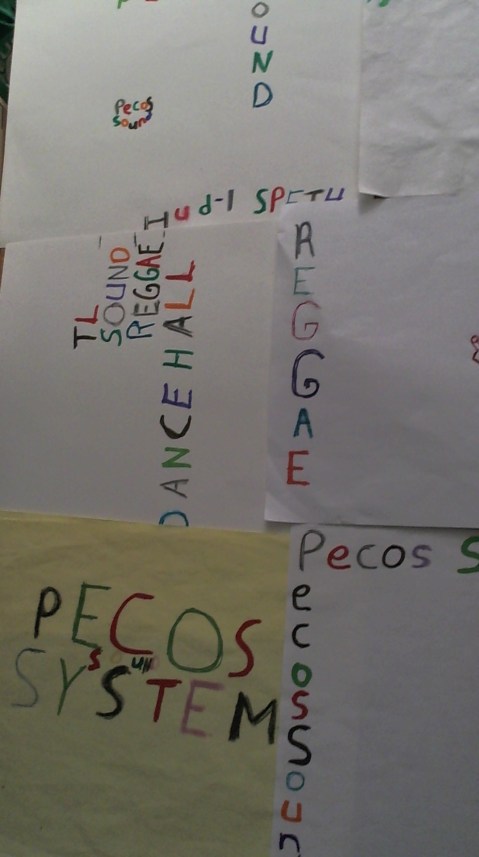 OUND
Pecos
Soun
SPETU
TL
SOUND
REGGAE
DANCEHALL
REGGAE
PECOS
SYSTEM
Pecos S
ecosSoun